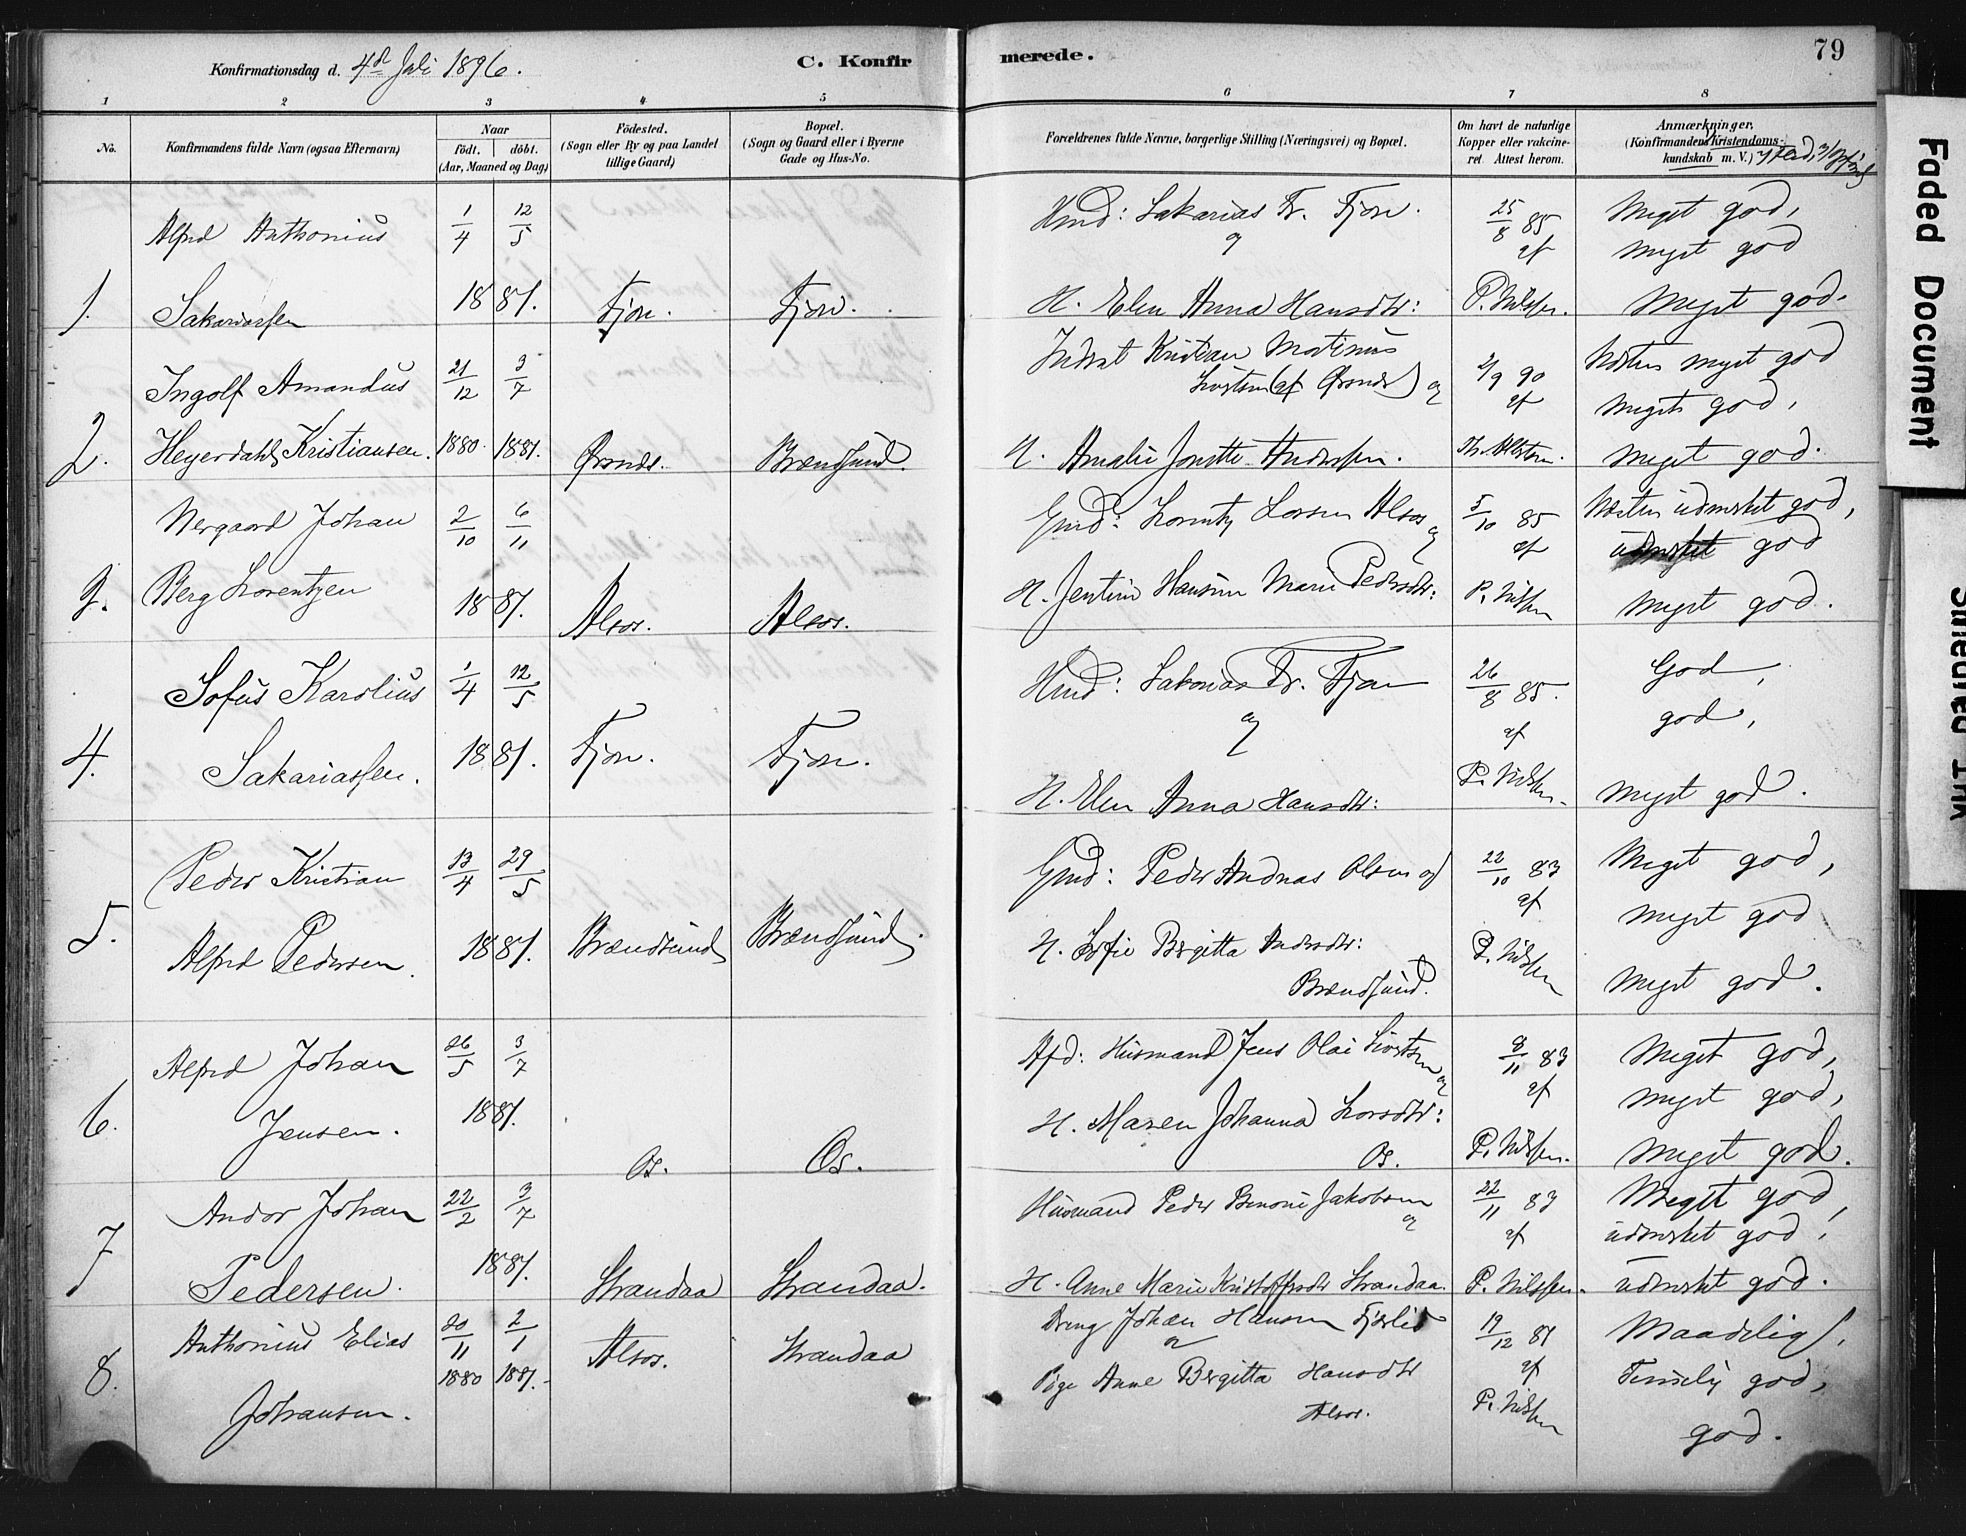 Konfirmationsdag d. 4de Juli 1896.
C. Konfirmerede.
79
1 2 3 4 5 6 7 8
No.
Konfirmandens fulde Navn (ogsaa Efternavn)
Naar
født. døbt.
(Aar, Maaned og Dag)
Fødested.
(Sogn eller By og paa Landet
tillige Gaard)
Bopæl.
(Sogn og Gaard eller i Byerne
Gade og Hus-No.
Forældrenes fulde Navne, borgerlige Stilling (Næringsvei) og Bopæl.
Om havt de naturlige
Kopper eller vakcine-
ret. Attest herom.
Anmærkninger.
(Konfirmandens Kristendoms-
kundskab m. V.)
1. Alfred Anthonius
Sakariassen
1/4 12/5
1881.
Fjon. Fjon.
Hmd: Sakarias Fr. Fjon.
og
H. Elen Anna Hansdtr:
25/8 85
af
P. Nilssen.
Meget god,
meget god
meget god.
2. Ingolf Amandus
Heyerdahl Kristiansen.
21/12 3/7
1880. 1881.
Brændsund.
Inderst Kristian Martinus
og
H. Amalie Jonette Anderssen.
2/9 90
af
Næsten meget god
meget god,
meget god.
3. Nergaard Johan
Berg Lorentzen
2/10 6/11
1881.
Alsos. Alsos.
Gmd: Lorentz Larsen Alsos
og
H. Jentine Hansine Marie Pedersdtr:
5/10 85
af
P. Nilssen
Næsten udmerket god,
udmerket god
meget god.
4. Sofus Karolius
Sakariassen.
1/4 12/5
1881.
Fjon. Fjon.
Hmd: Sakarias Fr. Fjon
og
H. Elen Anna Hansdtr:
26/8 85.
af
P. Nilssen.
God,
god,
meget god.
5. Peder Kristian
Alfred Pedersen.
13/4 29/5
1881.
Brændsund Brændsund.
Gmd: Peder Andreas Olsen og
H. Sofie Bergitta Andersdtr:
Brændsund.
22/10 83
af
P. Nilssen
Meget god,
meget god
meget god.
6. Alfred Johan
Jensen.
26/5 3/7
1881.
Os. Os.
Afd: Husmand Jens Olai Sivertsen
og
H. Maren Johanna Larsdtr:
Os.
8/11 83
af
P. Nilssen.
Meget god,
meget god,
meget god.
7 Andor Johan
Pedersen.
22/2 3/7
1881.
Strandaa Strandaa.
Husmand Peder Benoni Jakobsen
og
H. Anne Marie Kristoffersdtr Strandaa.
22/11 83
af
P. Nilssen.
Meget god,
udmerket god,
udmerket god.
8. Anthonius Elias
Johansen.
20/11 2/1
1880 1881.
Alsos. Strandaa
Dreng Johan Hansen Fjærlid
og
Pige Anne Bergitta Hansdtr
Alsos.
19/12 81
af
P. Nilssen
Maadelig,
Temmelig god,
god.
Faded Document